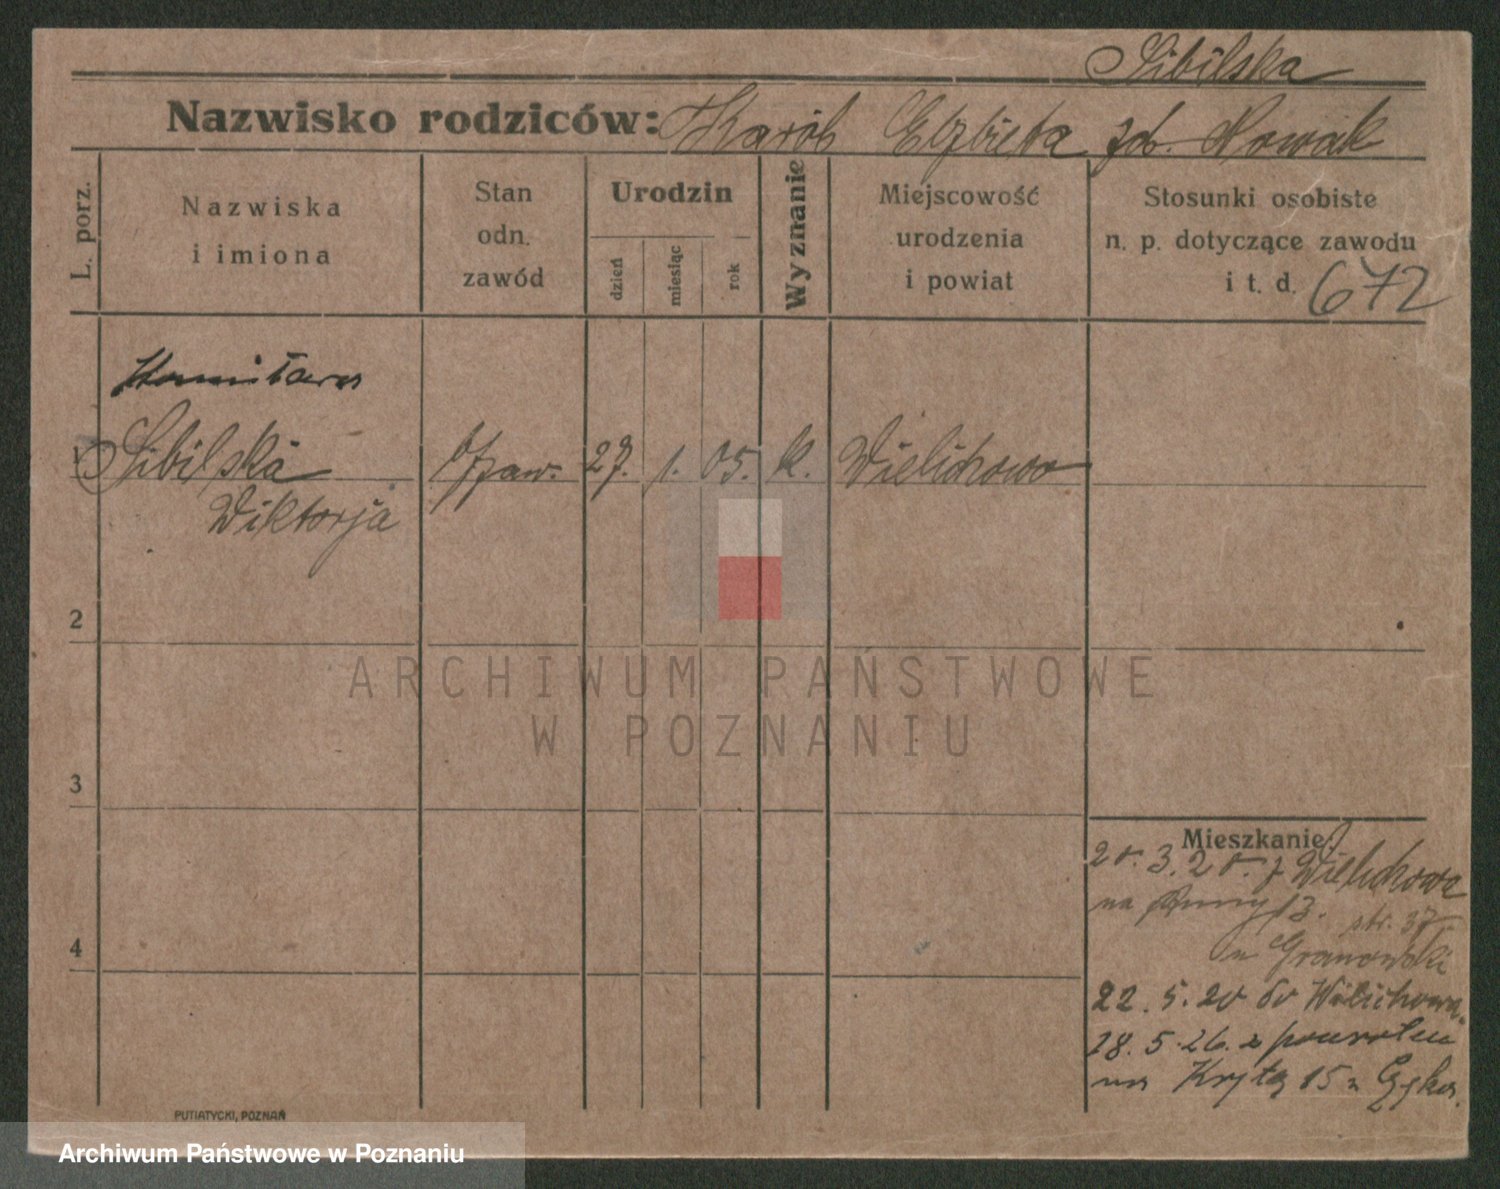 Sibilska
Nazwisko rodziców: Karól Elzbieta zd. Nowak
L. porz.
Nazwiska
i imiona
Stan
odn.
zawód
Urodzin
dzień
miesiąc
rok
Wyznanie
Miejscowość
urodzenia
i powiat
Stosunki osobiste
n. p. dotyczące zawodu
i t. d. 672
1 Sibilska 27. 1. 05. k. Wielichowo
Wiktorja
2
3
4
Mieszkanie:
20. 3. 20. z Wielichowa
na 13. str. 37
u Granowski
22. 5. 20 do Wielichowa
28. 5. 26. z powrotem
na 15
PUTIATYCKI, POZNAŃ
ARCHIWUM PAŃSTWOWE
W POZNANIU
Archiwum Państwowe w Poznaniu